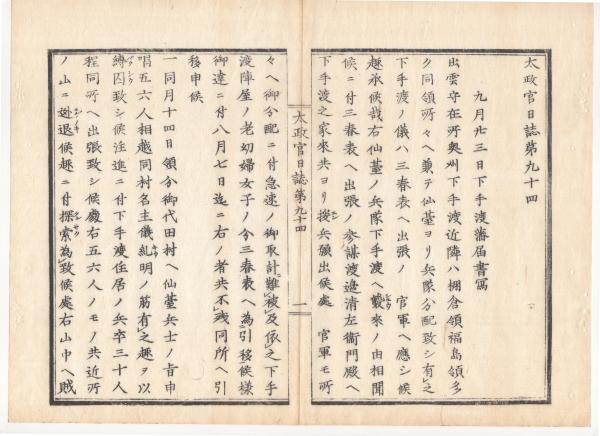 太政官日誌第九十四
九月廿三日下手渡藩届書寫
出雲守在所奥州下手渡近隣ハ棚倉領福島領多
ク同領所々ヘ兼テ仙臺ヨリ兵隊分配致シ有之
下手渡ノ儀ハ三春表ヘ出張ノ 官軍ヘ應シ候
趣承候哉右仙臺ノ兵隊下手渡ヘ襲來ノ由相聞
候ニ付三春表ヘ出張ノ參謀渡邊清左衛門殿ヘ
下手渡之家來共ヨリ援兵願出候處 官軍モ所
太政官日誌第九十四
一
々ヘ御分配ニ付急速ノ御取計難被及依之下手
渡陣屋ノ老幼婦女子ノ分三春表ヘ為引移候樣
御達ニ付八月七日迄ニ右ノ者共不殘同所ヘ引
移申候
一同月十四日領分御代田村ヘ仙臺兵士ノ旨申
唱五六人相越同村名主儀糺明ノ筋有之趣ヲ以
縛囚致シ候注進ニ付下手渡住居ノ兵卒三十人
程同所ヘ出張致シ候處右五六人ノモノ共近所
ノ山ニ迯退候趣ニ付探索為致候處右山中ヘ賊